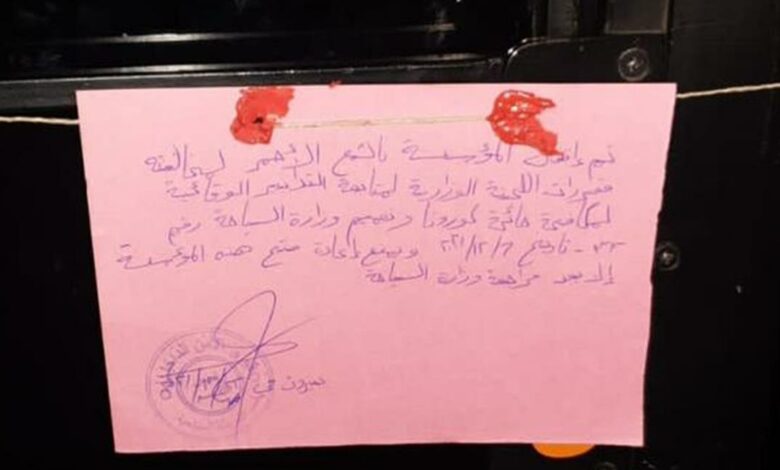 تم إقفال المؤسسة بالشمع الأحمر لمخالفته
مقررات اللجنة الوزارية لمتابعة التدابير الوقائية
لمكافحة جائحة كورونا وتعميم وزارة السياحة رقم
تاريخ ٢٠٢١/١٢/٦ ويمنع إعادة فتح هذه المؤسسة
إلا بعد مراجعة وزارة السياحة
بيروت في